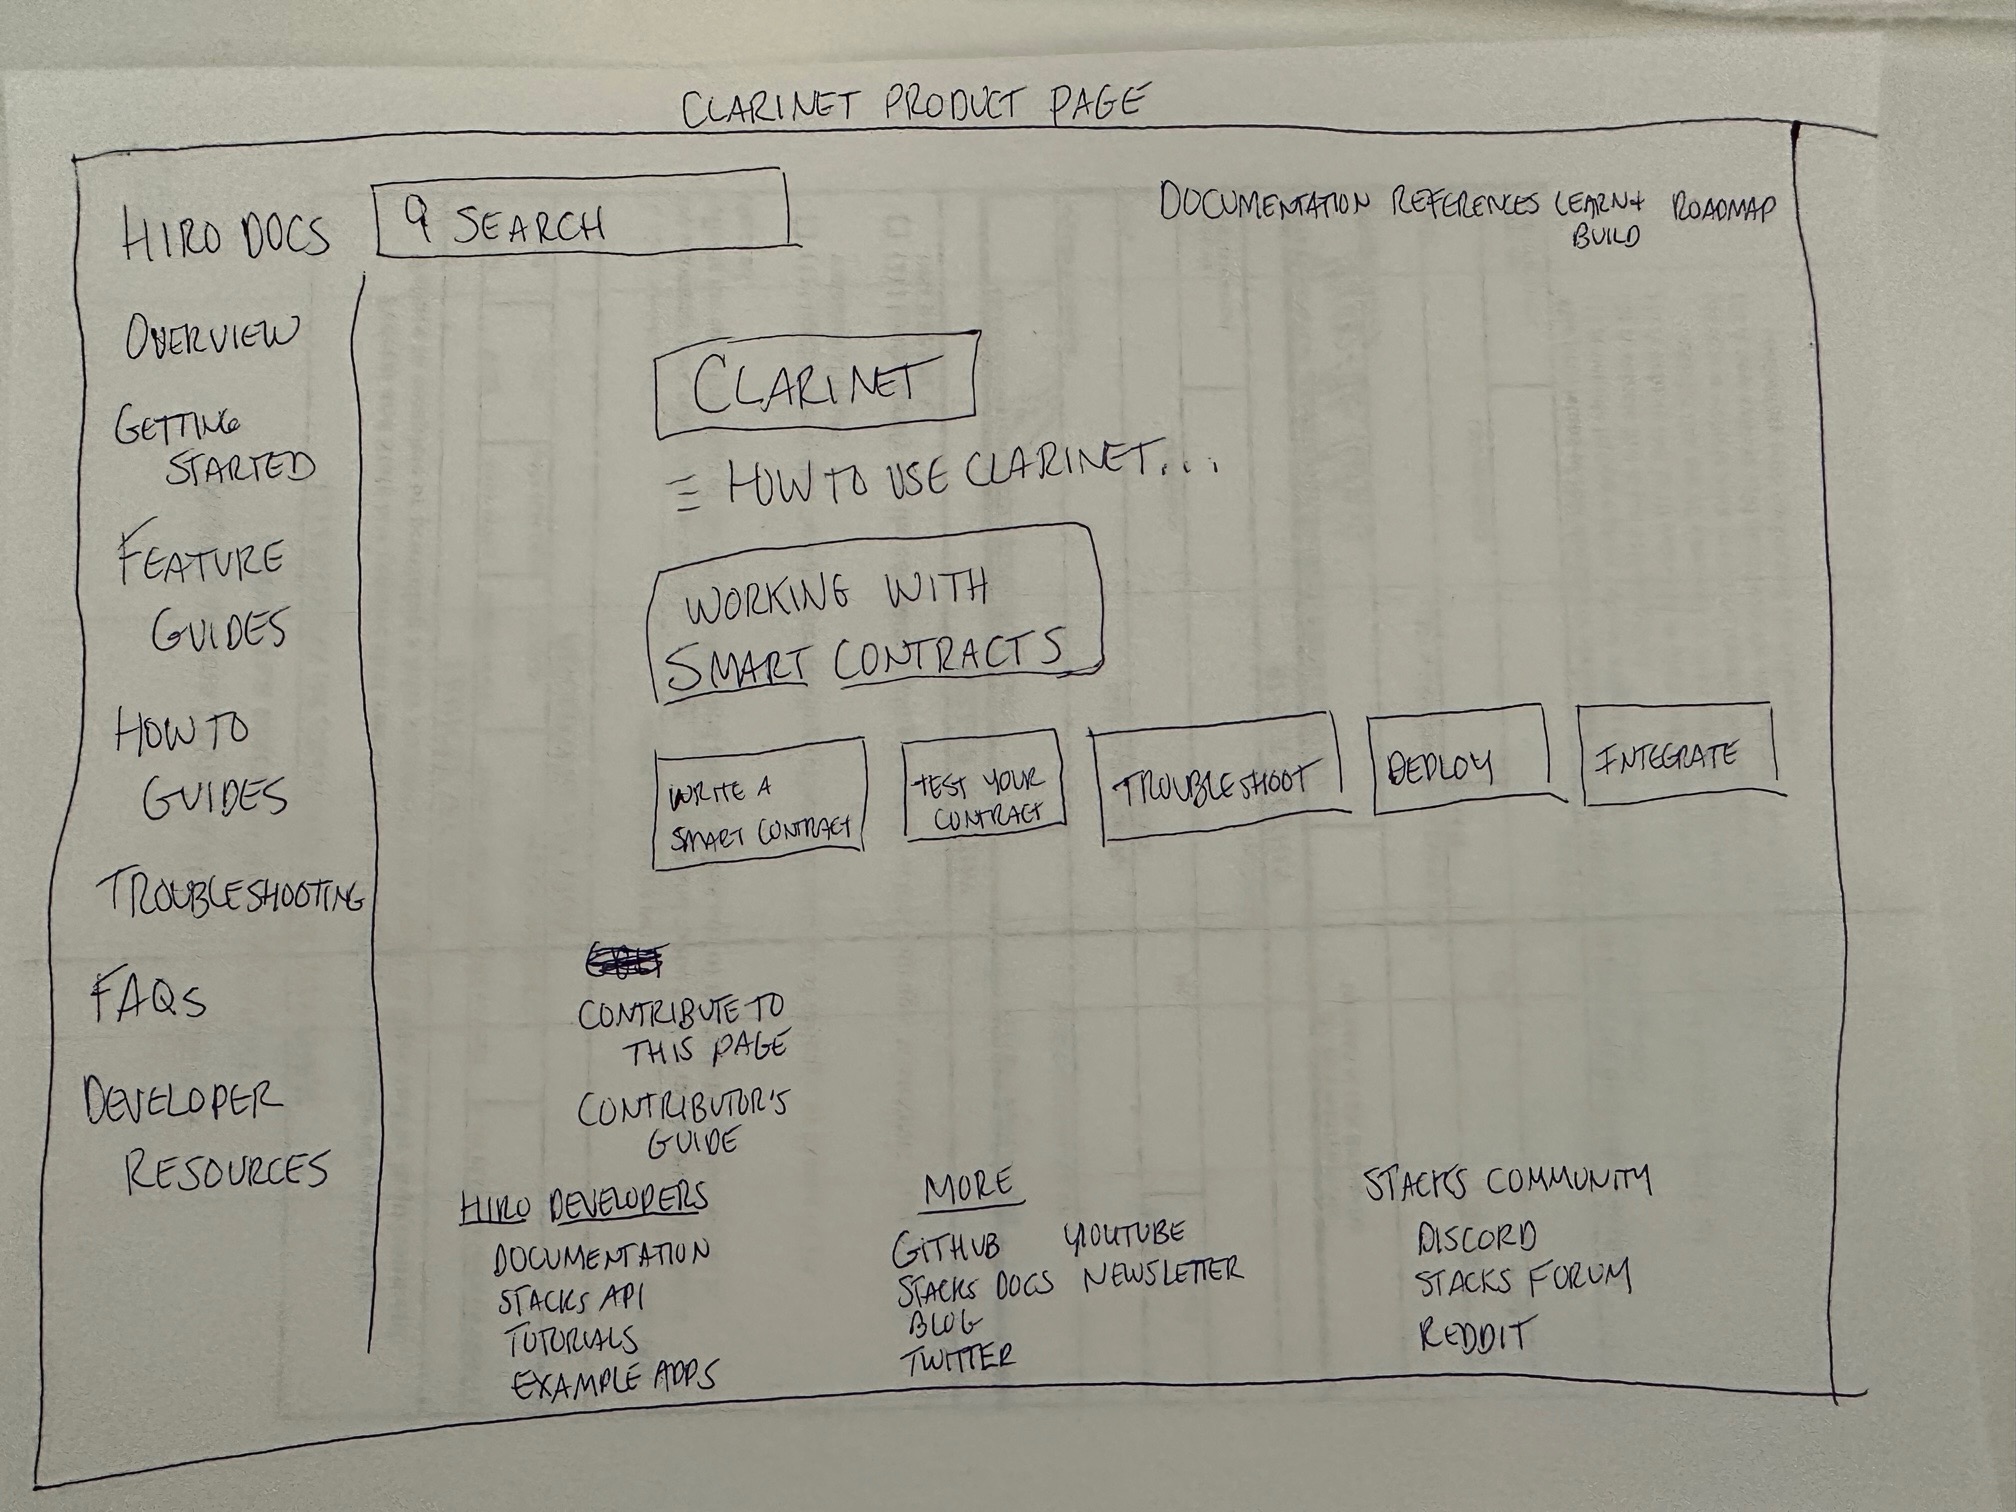 CLARINET PRODUCT PAGE
HIRO DOCS
SEARCH
DOCUMENTATION REFERENCES LEARN+ ROADMAP
BUILD
OVERVIEW
GETTING
STARTED
FEATURE
GUIDES
HOW TO
GUIDES
TROUBLESHOOTING
FAQS
DEVELOPER
RESOURCES
CLARINET
HOW TO USE CLARINET...
WORKING WITH
SMART CONTRACTS
WRITE A
SMART CONTRACT
TEST YOUR
CONTRACT
TROUBLESHOOT
DEPLOY
INTEGRATE
CONTRIBUTE TO
THIS PAGE
CONTRIBUTOR'S
GUIDE
HIRO DEVELOPERS
DOCUMENTATION
STACKS API
TUTORIALS
EXAMPLE APPS
MORE
GITHUB YOUTUBE
STACKS DOCS NEWSLETTER
BLOG
TWITTER
STACKS COMMUNITY
DISCORD
STACKS FORUM
REDDIT